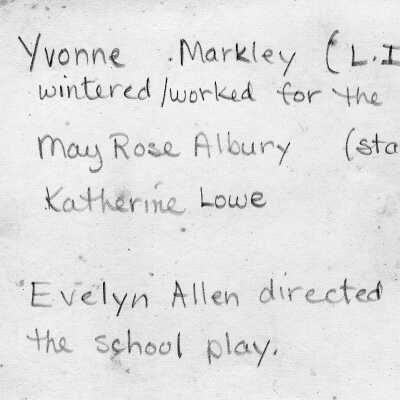 Yvonne . Markley (L.I
wintered/worked for the
May Rose Albury (sta
Katherine Lowe
Evelyn Allen directed
the school play.